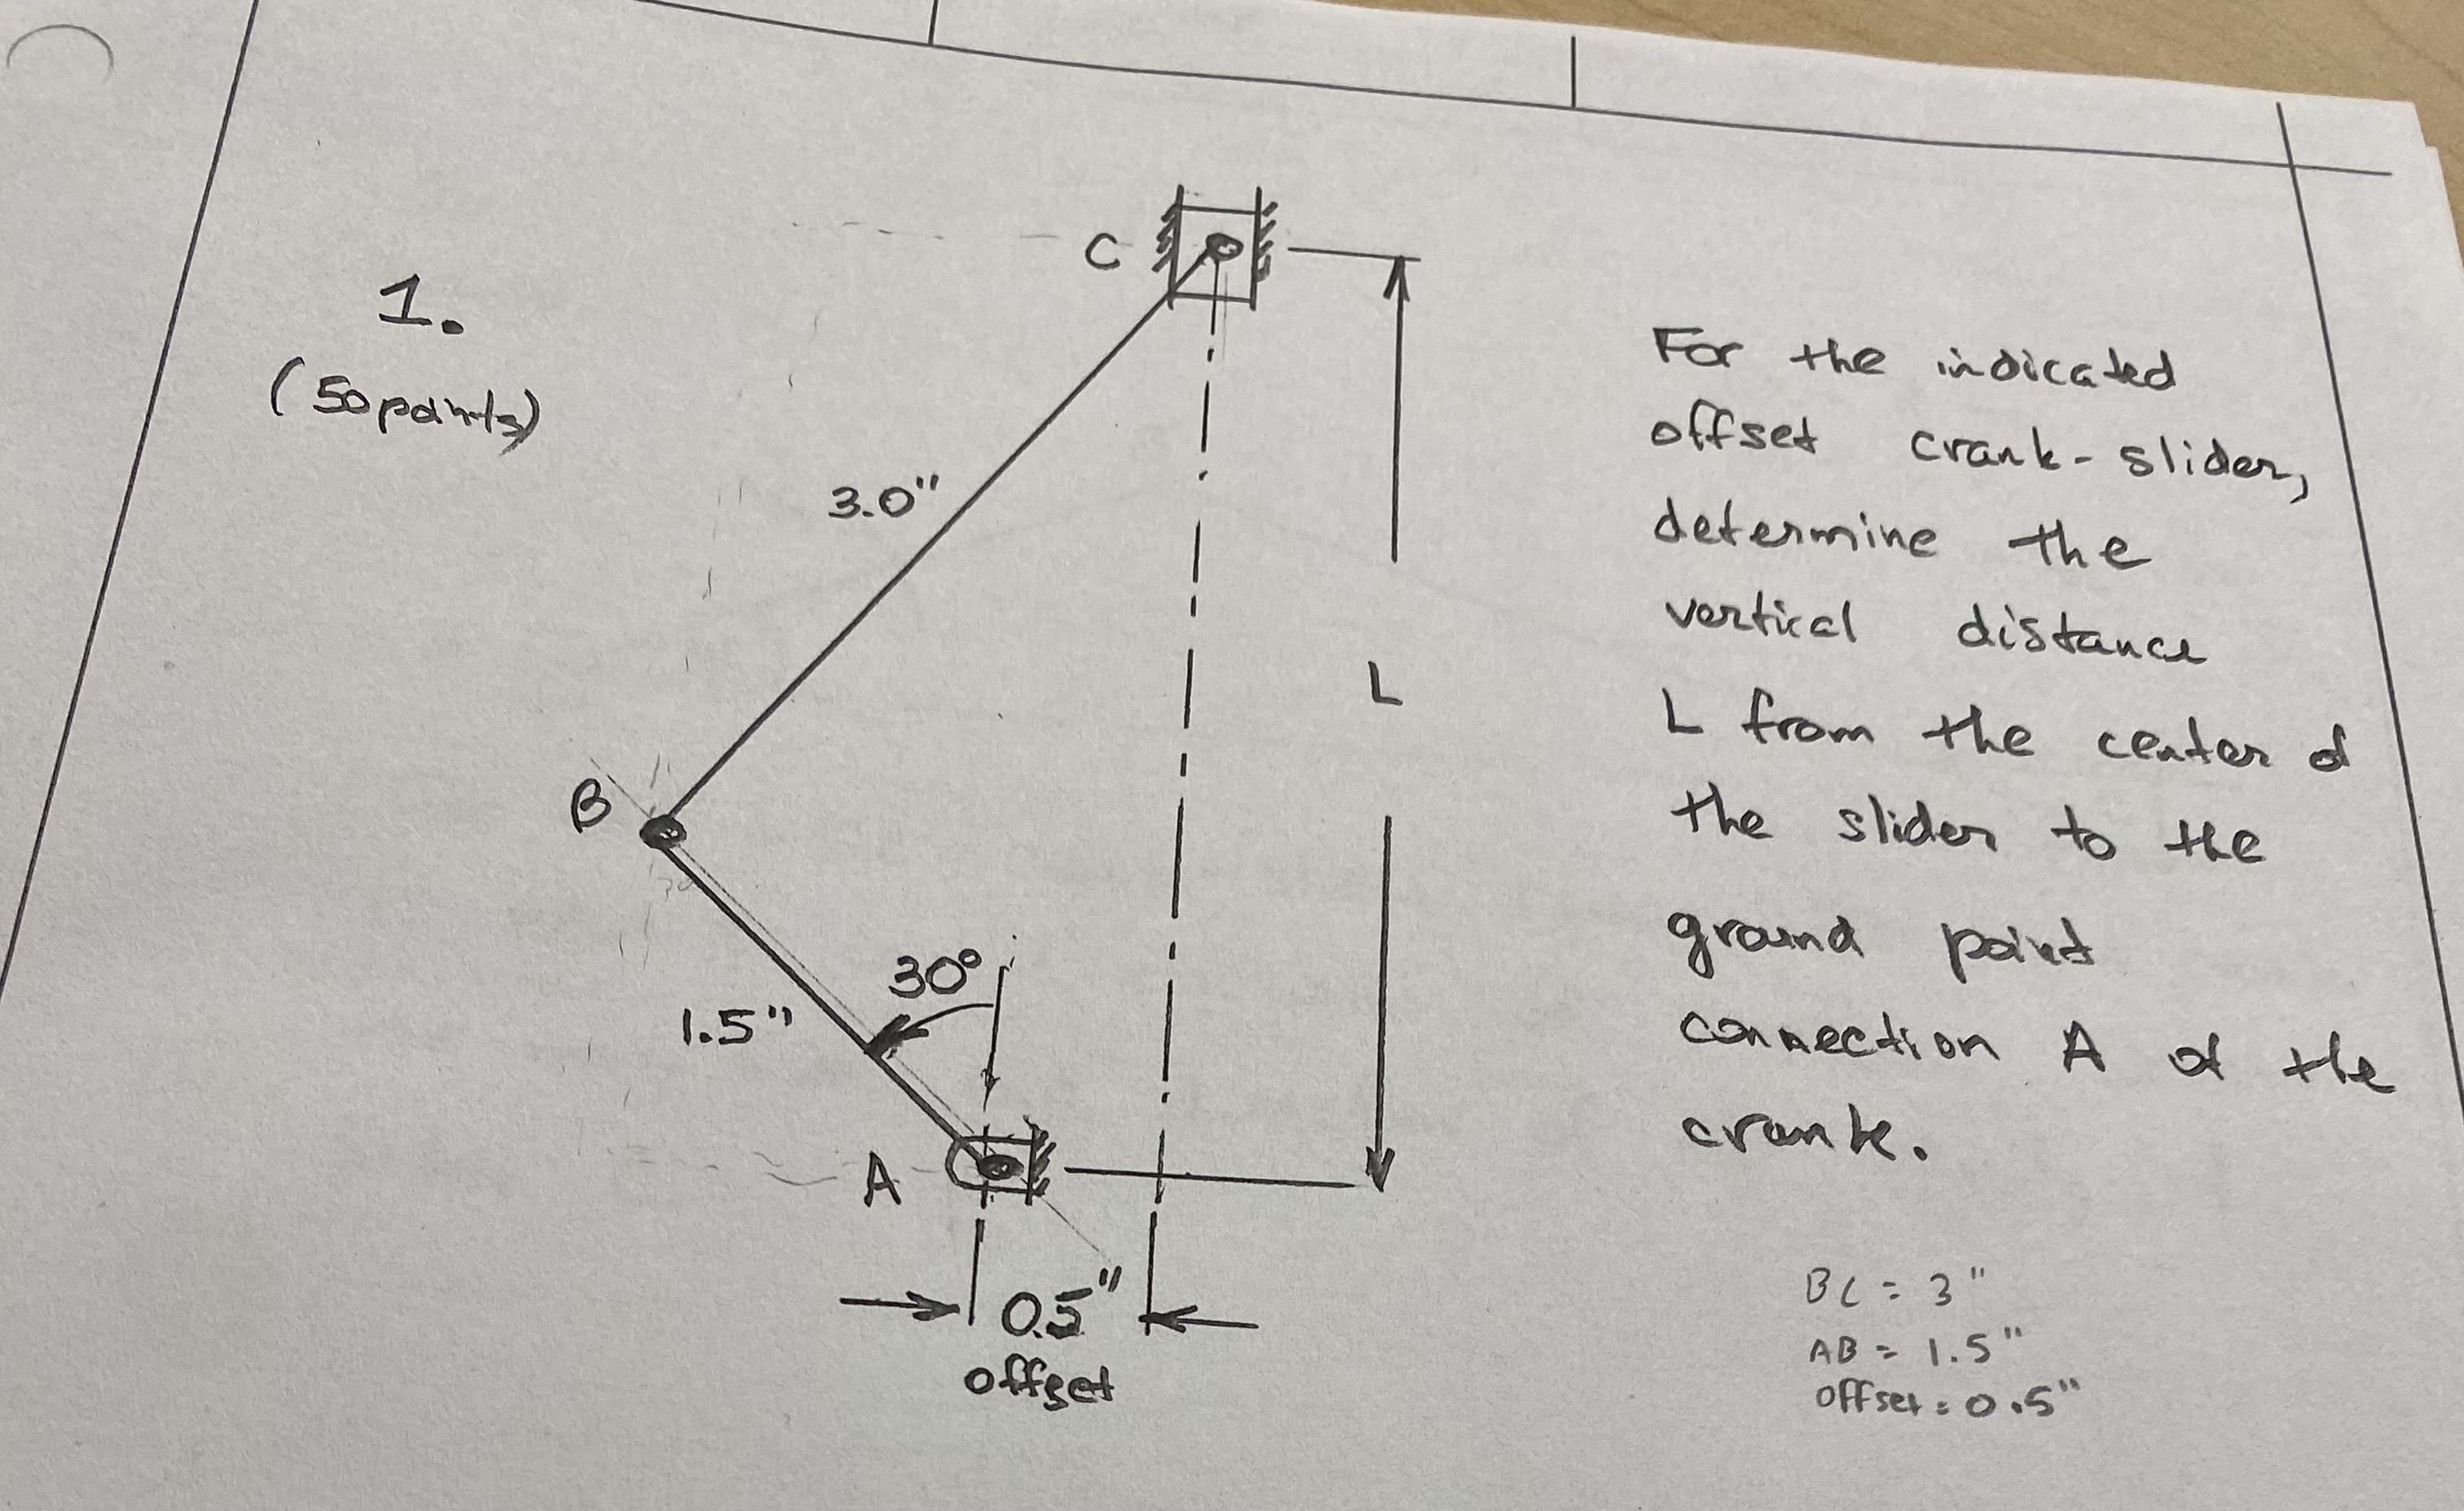 1.
(50 points)
C
3.0"
L
B
30°
1.5"
A
0.5"
offset
For the indicated
offset crank-slider,
determine the
vertical distance
L from the center of
the slider to the
ground point
connection A of the
crank.
BC = 3"
AB = 1.5"
Offset = 0.5"